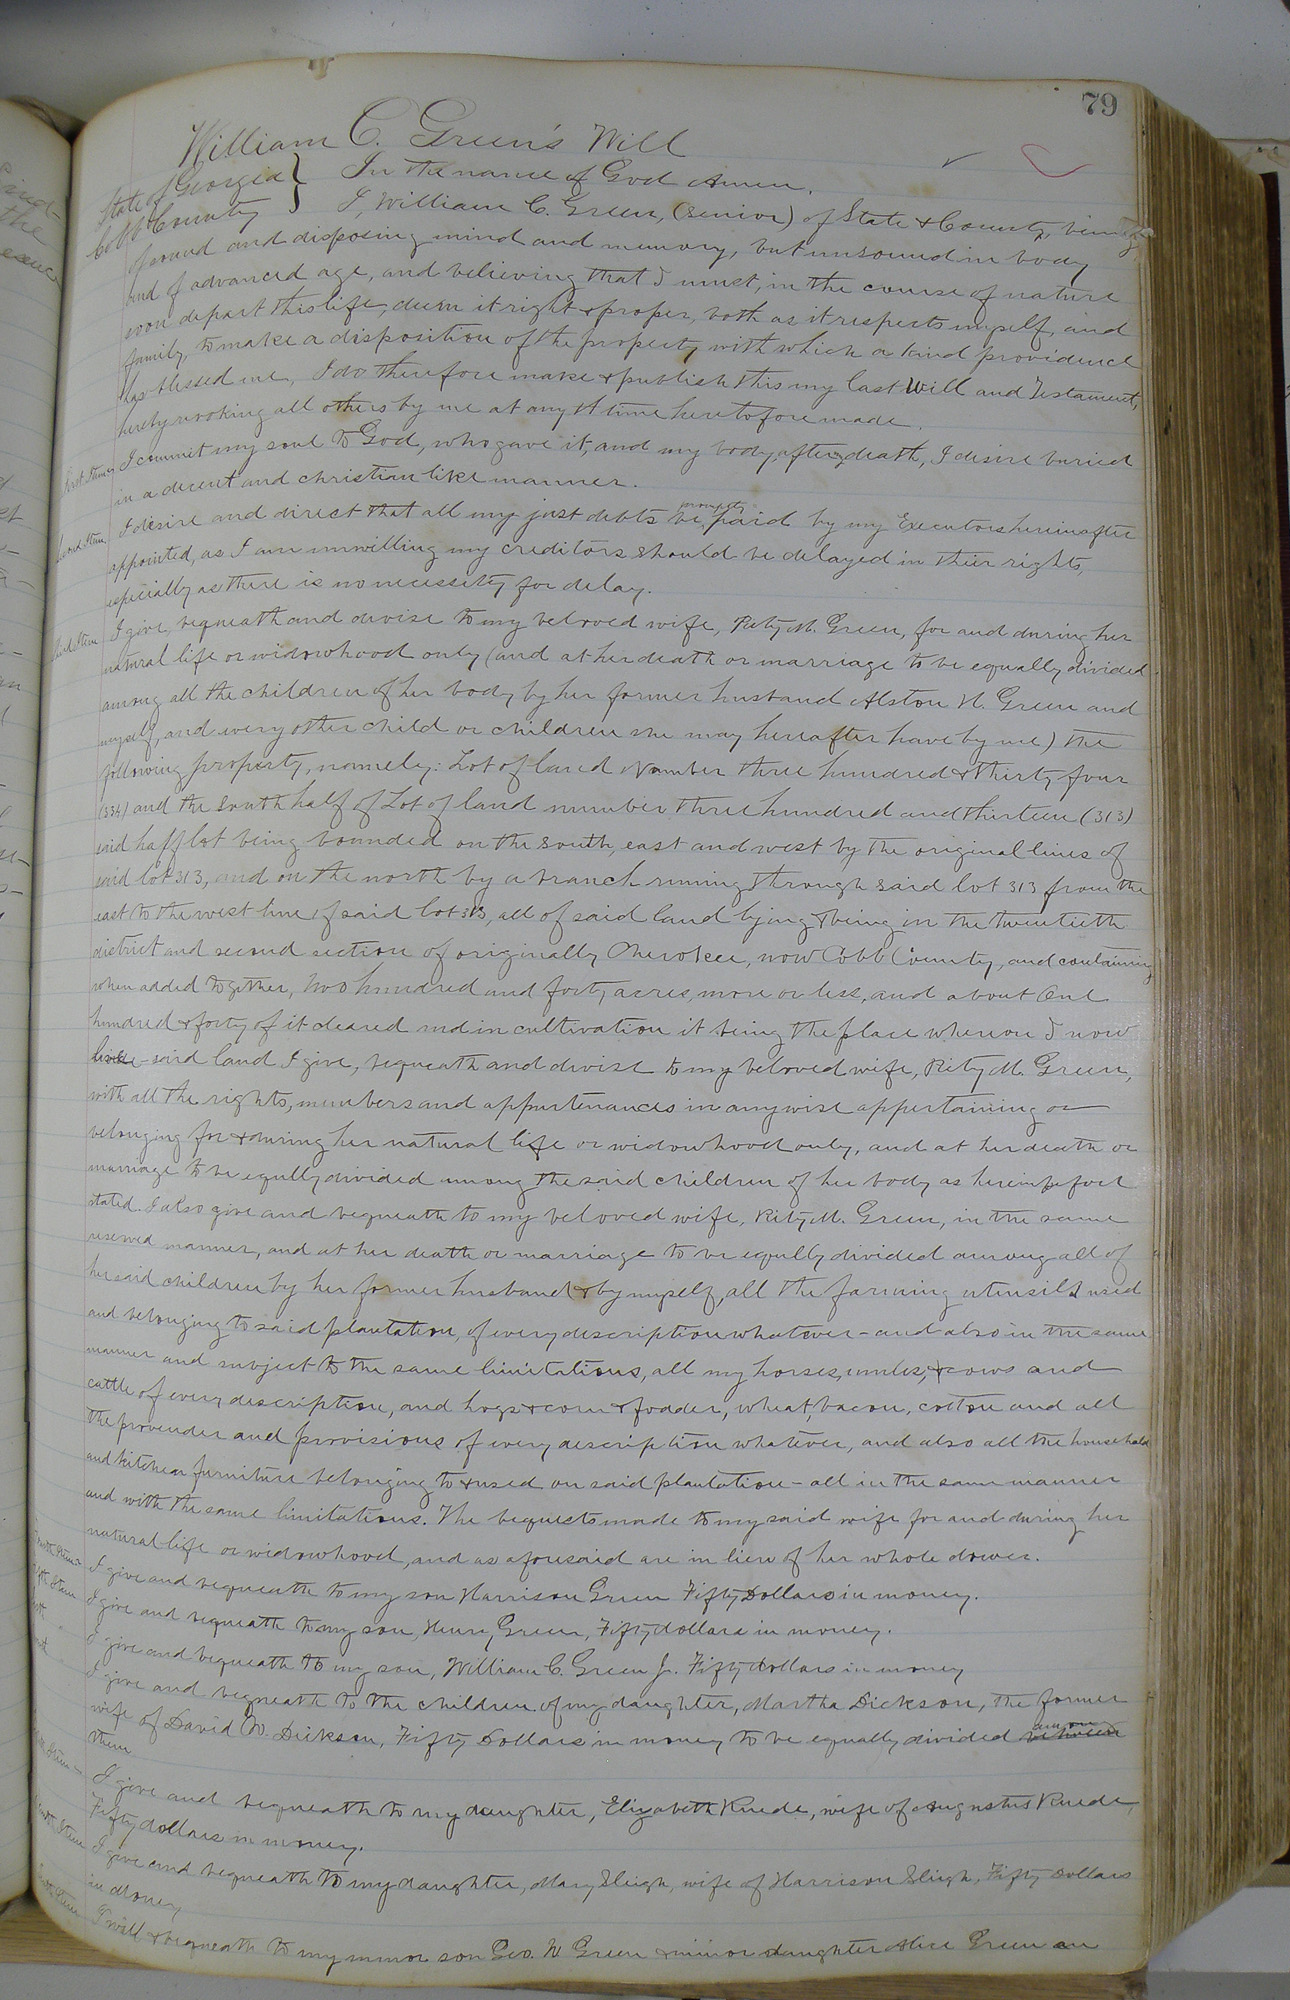 79
William C. Green's Will
State of Georgia } In the name of God Amen.
Cobb County } I, William C. Green, (Senior) of State & County, being
of sound and disposing mind and memory, but unsound in body
and of advanced age, and believing that I must, in the course of nature
soon depart this life, deem it right & proper, both as it respects myself and
family, to make a disposition of the property with which a kind providence
has blessed me, I do therefore make & publish this my last Will and Testament,
hereby revoking all others by me at any time heretofore made.
First Item I commit my soul to God, who gave it, and my body, after death, I desire buried
in a decent and christian like manner.
Second Item I desire and direct that all my just debts be promptly paid by my Executors hereinafter
appointed, as I am unwilling my creditors should be delayed in their rights,
especially as there is no necessity for delay.
Third Item I give, bequeath and devise to my beloved wife, M. Green, for and during her
natural life or widowhood only (and at her death or marriage to be equally divided
among all the children of her body by her former husband Alston H. Green and
myself, and every other child or children she may hereafter have by me) the
following property, namely: Lot of land Number three hundred & thirty four
(334) and the South half of Lot of land number three hundred and thirteen (313)
said half lot being bounded on the South, east and west by the original lines of
said lot 313, and on the north by a branch running through said lot 313 from the
east to the west line of said lot 313, all of said land lying & being in the twentieth
district and second section of originally Cherokee, now Cobb County, and containing
when added together, two hundred and forty acres, more or less, and about One
hundred & forty of it cleared and in cultivation it being the place whereon I now
live - said land I give, bequeath and devise to my beloved wife, M. Green,
with all the rights, members and appurtenances in anywise appertaining or
belonging for & during her natural life or widowhood only, and at her death or
marriage to be eqully divided among the said children of her body as hereinbefore
stated. I also give and bequeath to my beloved wife, M. Green, in the same
reserved manner, and at her death or marriage to be eqully divided among all of
her said children by her former husband & by myself, all the farming utensils used
and belonging to said plantation, of every description whatever - and also in the same
manner and subject to the same limitations, all my horses, mules, & cows and
cattle of every description, and hogs & corn & fodder, wheat, bacon, cotton and all
the provender and provisions of every description whatever, and also all the household
and kitchen furniture belonging to & used on said plantation - all in the same manner
and with the same limitations. The bequests made to my said wife for and during her
natural life or widowhood, and as aforesaid are in lieu of her whole dower.
Fourth Item I give and bequeath to my son Harrison Green Fifty Dollars in money.
Fifth Item I give and bequeath to my son, Henry Green, Fifty dollars in money.
I give and bequeath to my son, William C. Green Jr. Fifty dollars in money
I give and bequeath to the children of my daughter, Martha Dickson, the former
wife of David W. Dickson, Fifty Dollars in money to be equally divided between among
them
Item I give and bequeath to my daughter, Elizabeth Ruede, wife of Augustus Ruede,
Fifty dollars in money.
Item I give and bequeath to my daughter, Mary Sligh, wife of Harrison Sligh, Fifty Dollars
in Money
Item I will & bequeath to my minor son Geo. W Green & minor daughter Alice Green an